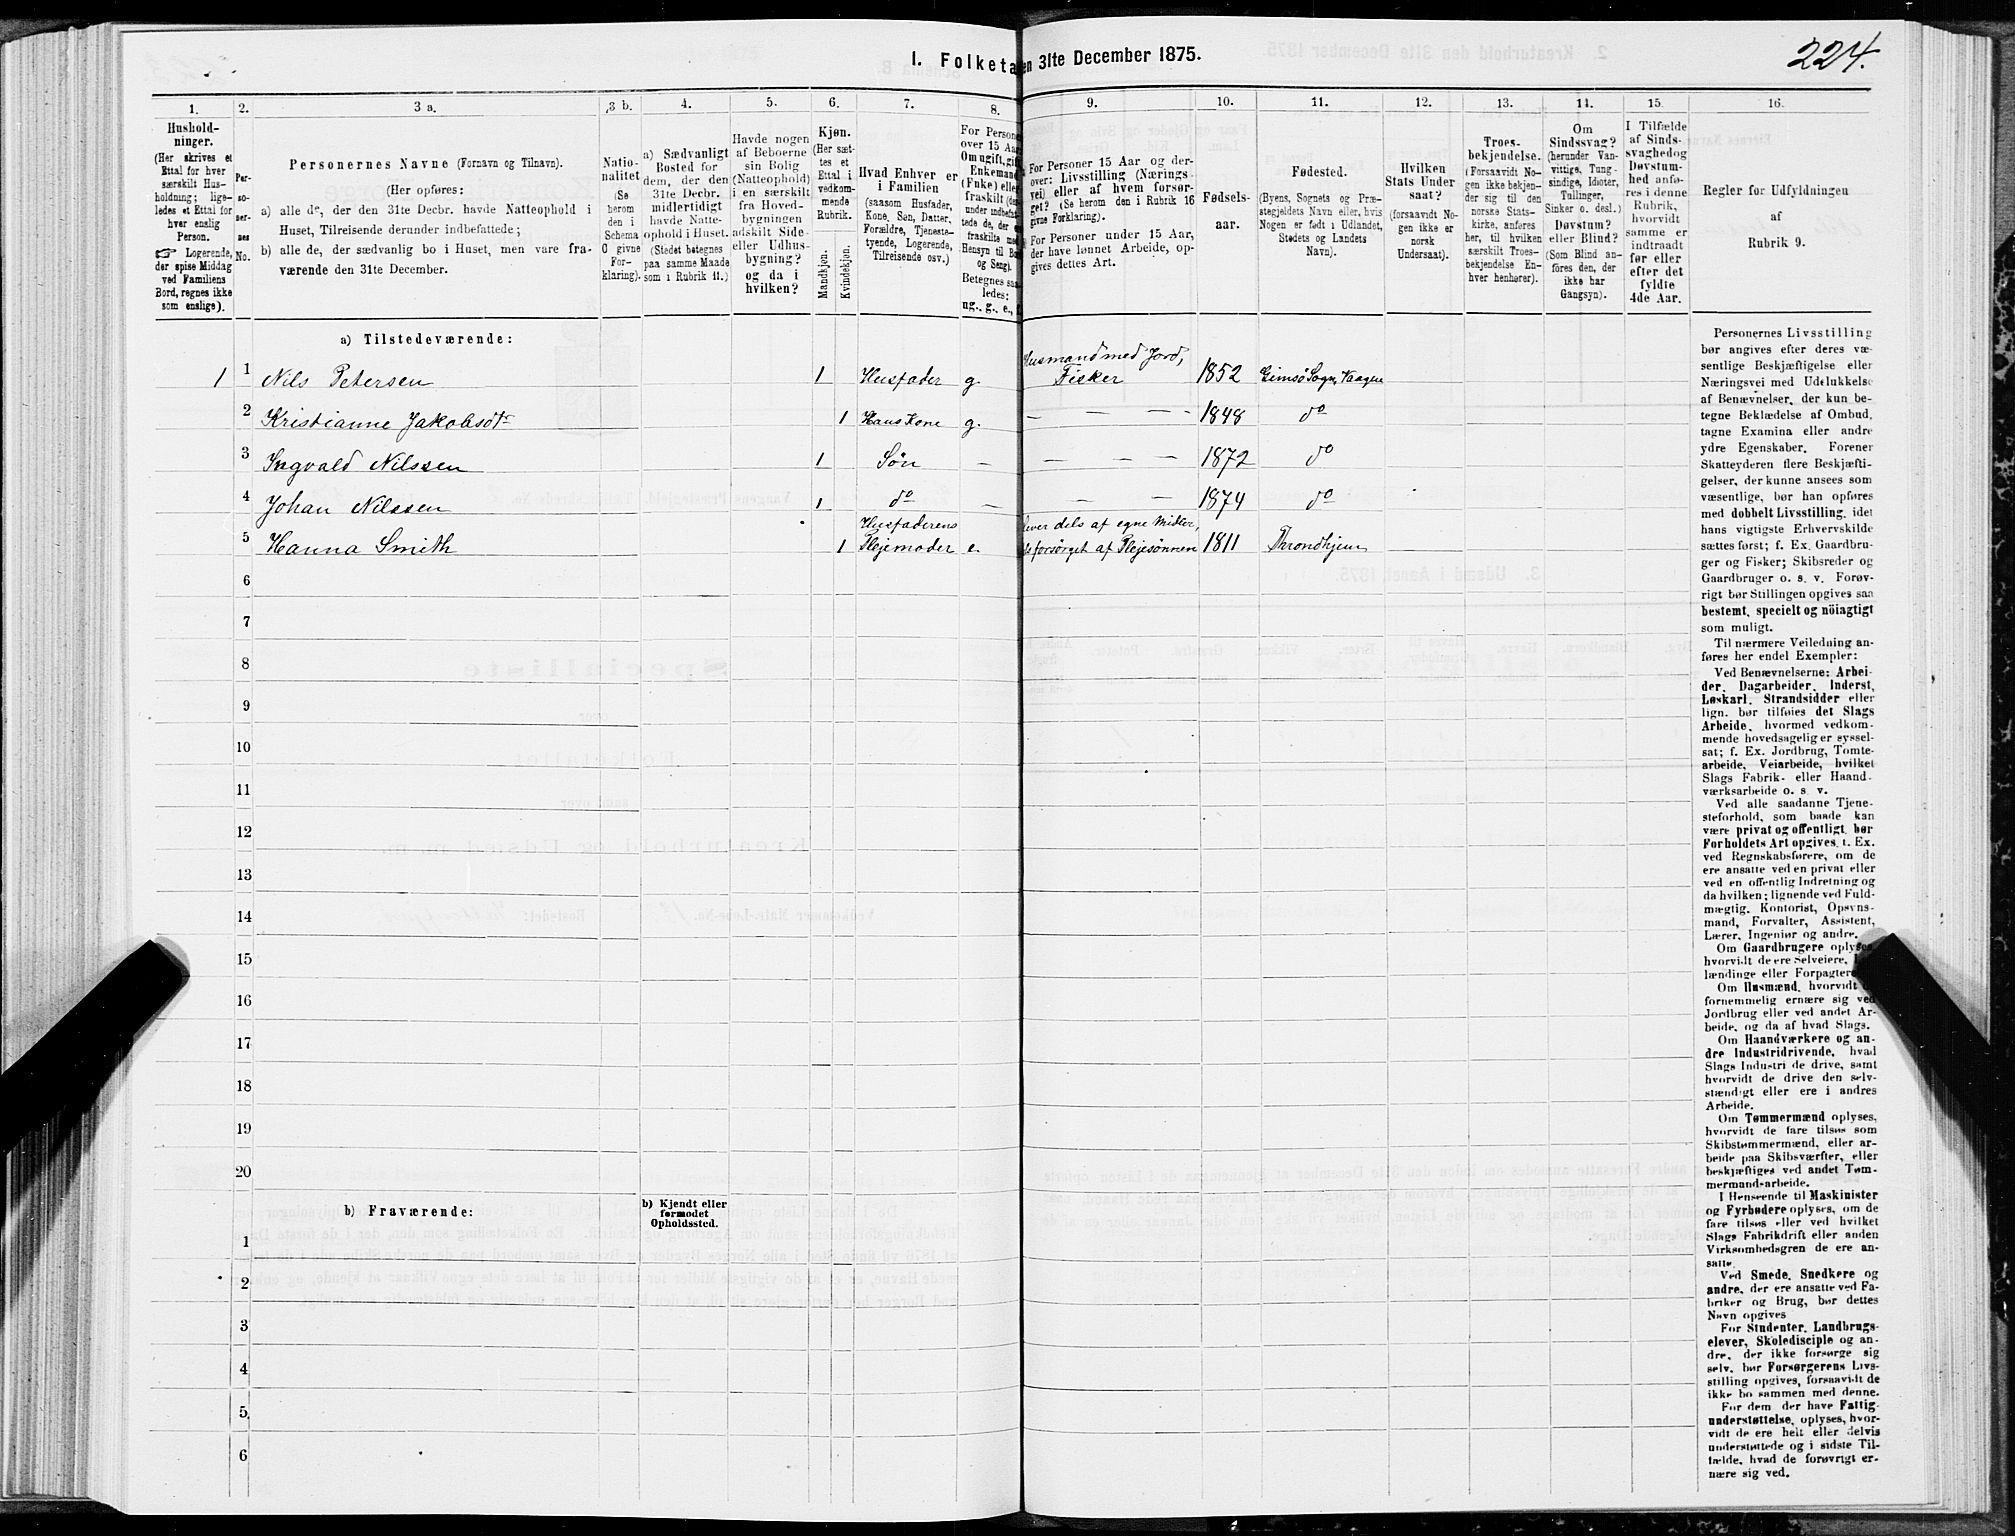 I. Folketa en 31te December 1875.
224.
1. 2. 3 a. 3 b. 4. 5. 6. 7. 8. 9. 10. 11. 12. 13. 14. 15. 16.
Hushold-
ninger.
(Her skrives et
Ettal for hver
særskilt Hus-
holdning; lige-
ledes et Ettal for
hver enslig
Person.
☞ Logerende,
der spise Middag
ved Familiens
Bord, regnes ikke
som enslige).
Per-
so-
ner-
nes
No.
Personernes Navne (Fornavn og Tilnavn).
(Her opføres:
a) alle de, der den 31te Decbr. havde Natteophold i
Huset, Tilreisende derunder indbefattede;
b) alle de, der sædvanlig bo i Huset, men vare fra-
værende den 31te December.
Natio-
nalitet
(Se
herom
den i
Schema
O givne
For-
klaring).
a) Sædvanligt
Bosted for
dem, der den
31te Decbr.
midlertidigt
havde Natte-
ophold i Huset.
(Stedet betegnes
paa samme Maade
som i Rubrik 11.)
Havde nogen
af Beboerne
sin Bolig
(Natteophold)
i en særskilt
fra Hoved-
bygningen
adskilt Side-
eller Udhus-
bygning?
og da i
hvilken?
Kjøn.
(Her sæt-
tes et
Ettal i
vedkom-
mende
Rubrik.
Mandkjøn.
Kvindekjøn.
Hvad Enhver er
i Familien
(saasom Husfader,
Kone, Søn, Datter,
Forældre, Tjeneste-
tyende, Logerende,
Tilreisende osv.)
For Persone
over 15 Aar
Om ugift, gift
Enkemand
(Enke) eller
fraskilt
under indbefat-
tede de, der ere
fraskilte med
Hensyn til Bo
og Seng).
Betegnes saa-
ledes:
ug., g., e.,
For Personer 15 Aar og der-
over: Livsstilling (Nærings-
vei) eller af hvem forsør-
get? (Se herom den i Rubrik 16
givne Forklaring).
For Personer under 15 Aar,
der have lønnet Arbeide, op-
gives dettes Art.
Fødsels-
aar.
Fødested.
(Byens, Sognets og Præ-
stegjeldets Navn eller, hvis
Nogen er født i Udlandet,
Stedets og Landets
Navn).
Hvilken
Stats Under
saat?
(forsaavidt No-
gen ikke er
norsk
Undersaat).
Troes-
bekjendelse.
(Forsaavidt No-
gen ikke bekjen-
der sig til den
norske Stats-
kirke, anføres
her, til hvilken
særskilt Troes-
bekjendelse En-
hver henhører).
Om
Sindssvag?
(herunder Van-
vittige, Tung-
sindige, Idioter,
Tullinger,
Sinker o. desl.)
Døvstum?
eller Blind?
(Som Blind an-
føres den, der
ikke har
Gangsyn).
I Tilfælde
af Sinds-
svaghed og
Døvstum-
hed anfø-
res i denne
Rubrik,
hvorvidt
samme er
indtraadt
før eller
efter det
fyldte
4de Aar.
Regler for Udfyldningen
af
Rubrik 9.
a) Tilstedeværende:
1 1 Nils Petersen 1 Husfader g. Husmand med Jord,
Fisker 1852 Gimsö Sogn, Vaagen
2 Kristianne Jakobsdtr 1 Hans Kone g. - - - 1848 do
3 Ingvald Nilssen 1 Søn - - - - 1872 do
4 Johan Nilssen 1 do - - - 1874 do
5 Hanna Smith 1 Husfaderens
Plejemoder e. Lever dels af egne Midler,
forsörget af Plejesönnen 1811 Throndhjem
6
7
8
9
10
11
12
13
14
15
16
17
18
19
20
b) Fraværende:
b) Kjendt eller
formodet
Opholdssted.
1
2
3
4
5.
6
Personernes Livsstilling
bør angives efter deres væ-
sentlige Beskjæftigelse eller
Næringsvei med Udelukkelse
af Benævnelser, der kun be-
tegne Beklædelse af Ombud,
tagne Examina eller andre
ydre Egenskaber. Forener
Skatteyderen flere Beskjæfti-
gelser, der kunne ansees som
væsentlige, bør han opføres
med dobbelt Livsstilling, idet
hans vigtigste Erhvervskilde
sættes først; f. Ex. Gaardbru-
ger og Fisker; Skibsreder og
Gaardbruger o. s. v. Forøv-
rigt bør Stillingen opgives saa
bestemt, specielt og nöiagtigt
som muligt.
Til nærmere Veiledning an-
føres her endel Exempler:
Ved Benævnelserne: Arbei-
der, Dagarbeider, Inderst,
Løskarl, Strandsidder eller
lign. bør tilføies det Slags
Arbeide, hvormed vedkom-
mende hovedsagelig er syssel-
sat; f. Ex. Jordbrug, Tomte-
arbeide, Veiarbeide, hvilket
Slags Fabrik- eller Haand-
værksarbeide o. s. v.
Ved alle saadanne Tjene-
steforhold, som baade kan
være privat og offentligt, bør
Forholdets Art opgives, t. Ex.
ved Regnskabsførere, om de
ere ansatte ved en privat eller
ved en offentlig Indretning og
da hvilken; lignende ved Fuld-
mægtig, Kontorist, Opsyns-
mand, Forvalter, Assistent,
Lærer, Ingeniør og andre.
Om Gaardbrugere oplyses,
hvorvidt de ere Selveiere,
lændinge eller Forpagtere
Om Husmænd, hvorvidt
fornemmelig ernære sig ved
Jordbrug eller ved andet Ar-
beide, og da af hvad Slags.
Om Haandværkere og an-
dre Industridrivende, hvad
Slags Industri de drive, samt
hvorvidt de drive den selv-
stændigt eller ere i andres
Arbeide.
Om Tømmermænd oplyses,
hvorvidt de fare tilsøs som
Skibstømmermænd, eller ar-
beide paa Skibsværfter, eller
beskjæftiges ved andet Tøm-
mermandsarbeide.
I Henseende til Maskinister
og Fyrbødere oplyses, om de
fare tilsøs eller ved hvilket
Slags Fabrikdrift eller anden
Virksomhedsgren de ere an-
satte.
Ved Smede, Snedkere og
andre, der ere ansatte ved Fa-
briker og Brug, bør dettes
Navn opgives
For Studenter, Landbrugs-
elever, Skoledisciple og an-
dre, der ikke forsørge sig
selv, bør Forsørgerens Livs-
stilling opgives, forsaavidt de
ikke bo sammen med denne.
For dem, der have Fattig-
understøttelse, oplyses, hvor-
vidt de ere helt eller delvis
understøttede og i sidste Til-
fælde, hvad de forøvrigt er-
nære sig ved.